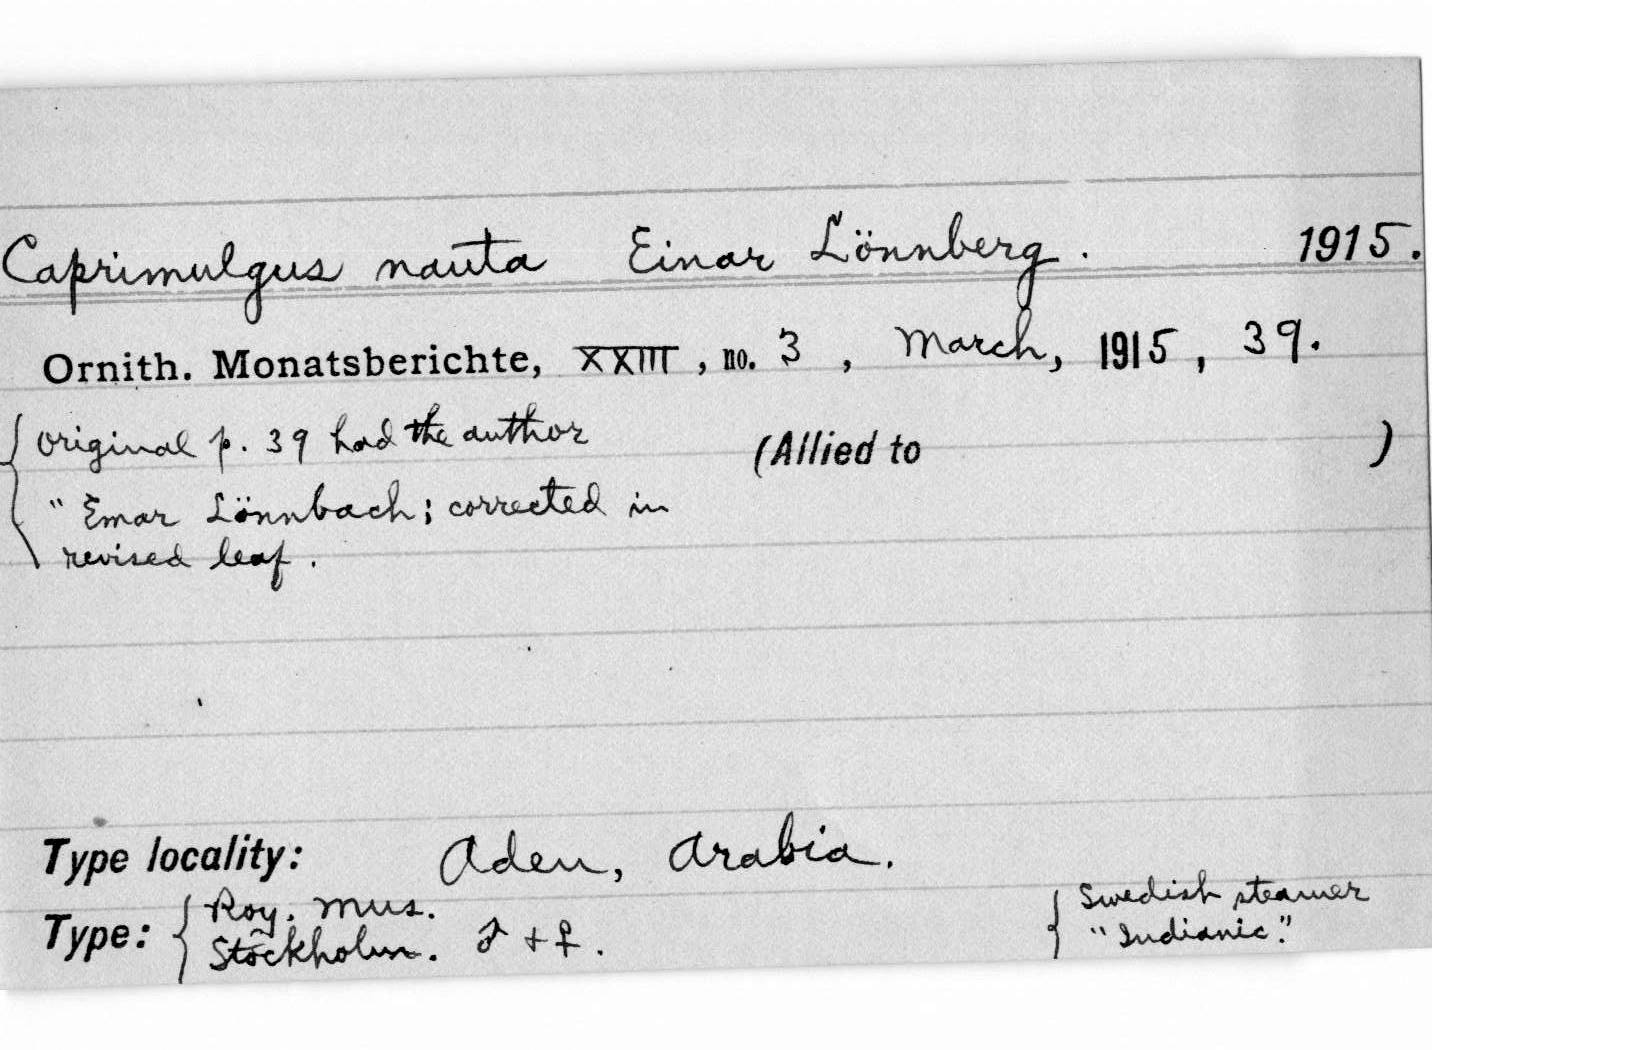 Caprimulgus nauta Einar Lönnberg. 1915.
Ornith. Monatsberichte, XXIII, no. 3, March, 1915, 39.
original p. 39 had the author (Allied to )
" Emar Lönnbach; corrected in
revised leaf.
Type locality: Aden, Arabia.
Type: Roy. Mus. Stockholm. ♂ + ♀.
Swedish steamer
"Indianic."